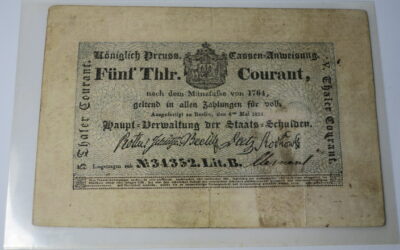 Königlich Preuss. Cassen-Anweisung.
Fünf Thlr. Courant,
nach dem Münzfuße von 1764,
geltend in allen Zahlungen für voll.
Ausgefertigt zu Berlin, den Mai
Haupt-Verwaltung der Staats-Schulden.
Rother Beelitz Deetz Rochow
No. 34352. Lit. B.
5 Thaler Courant.
V. Thaler Courant